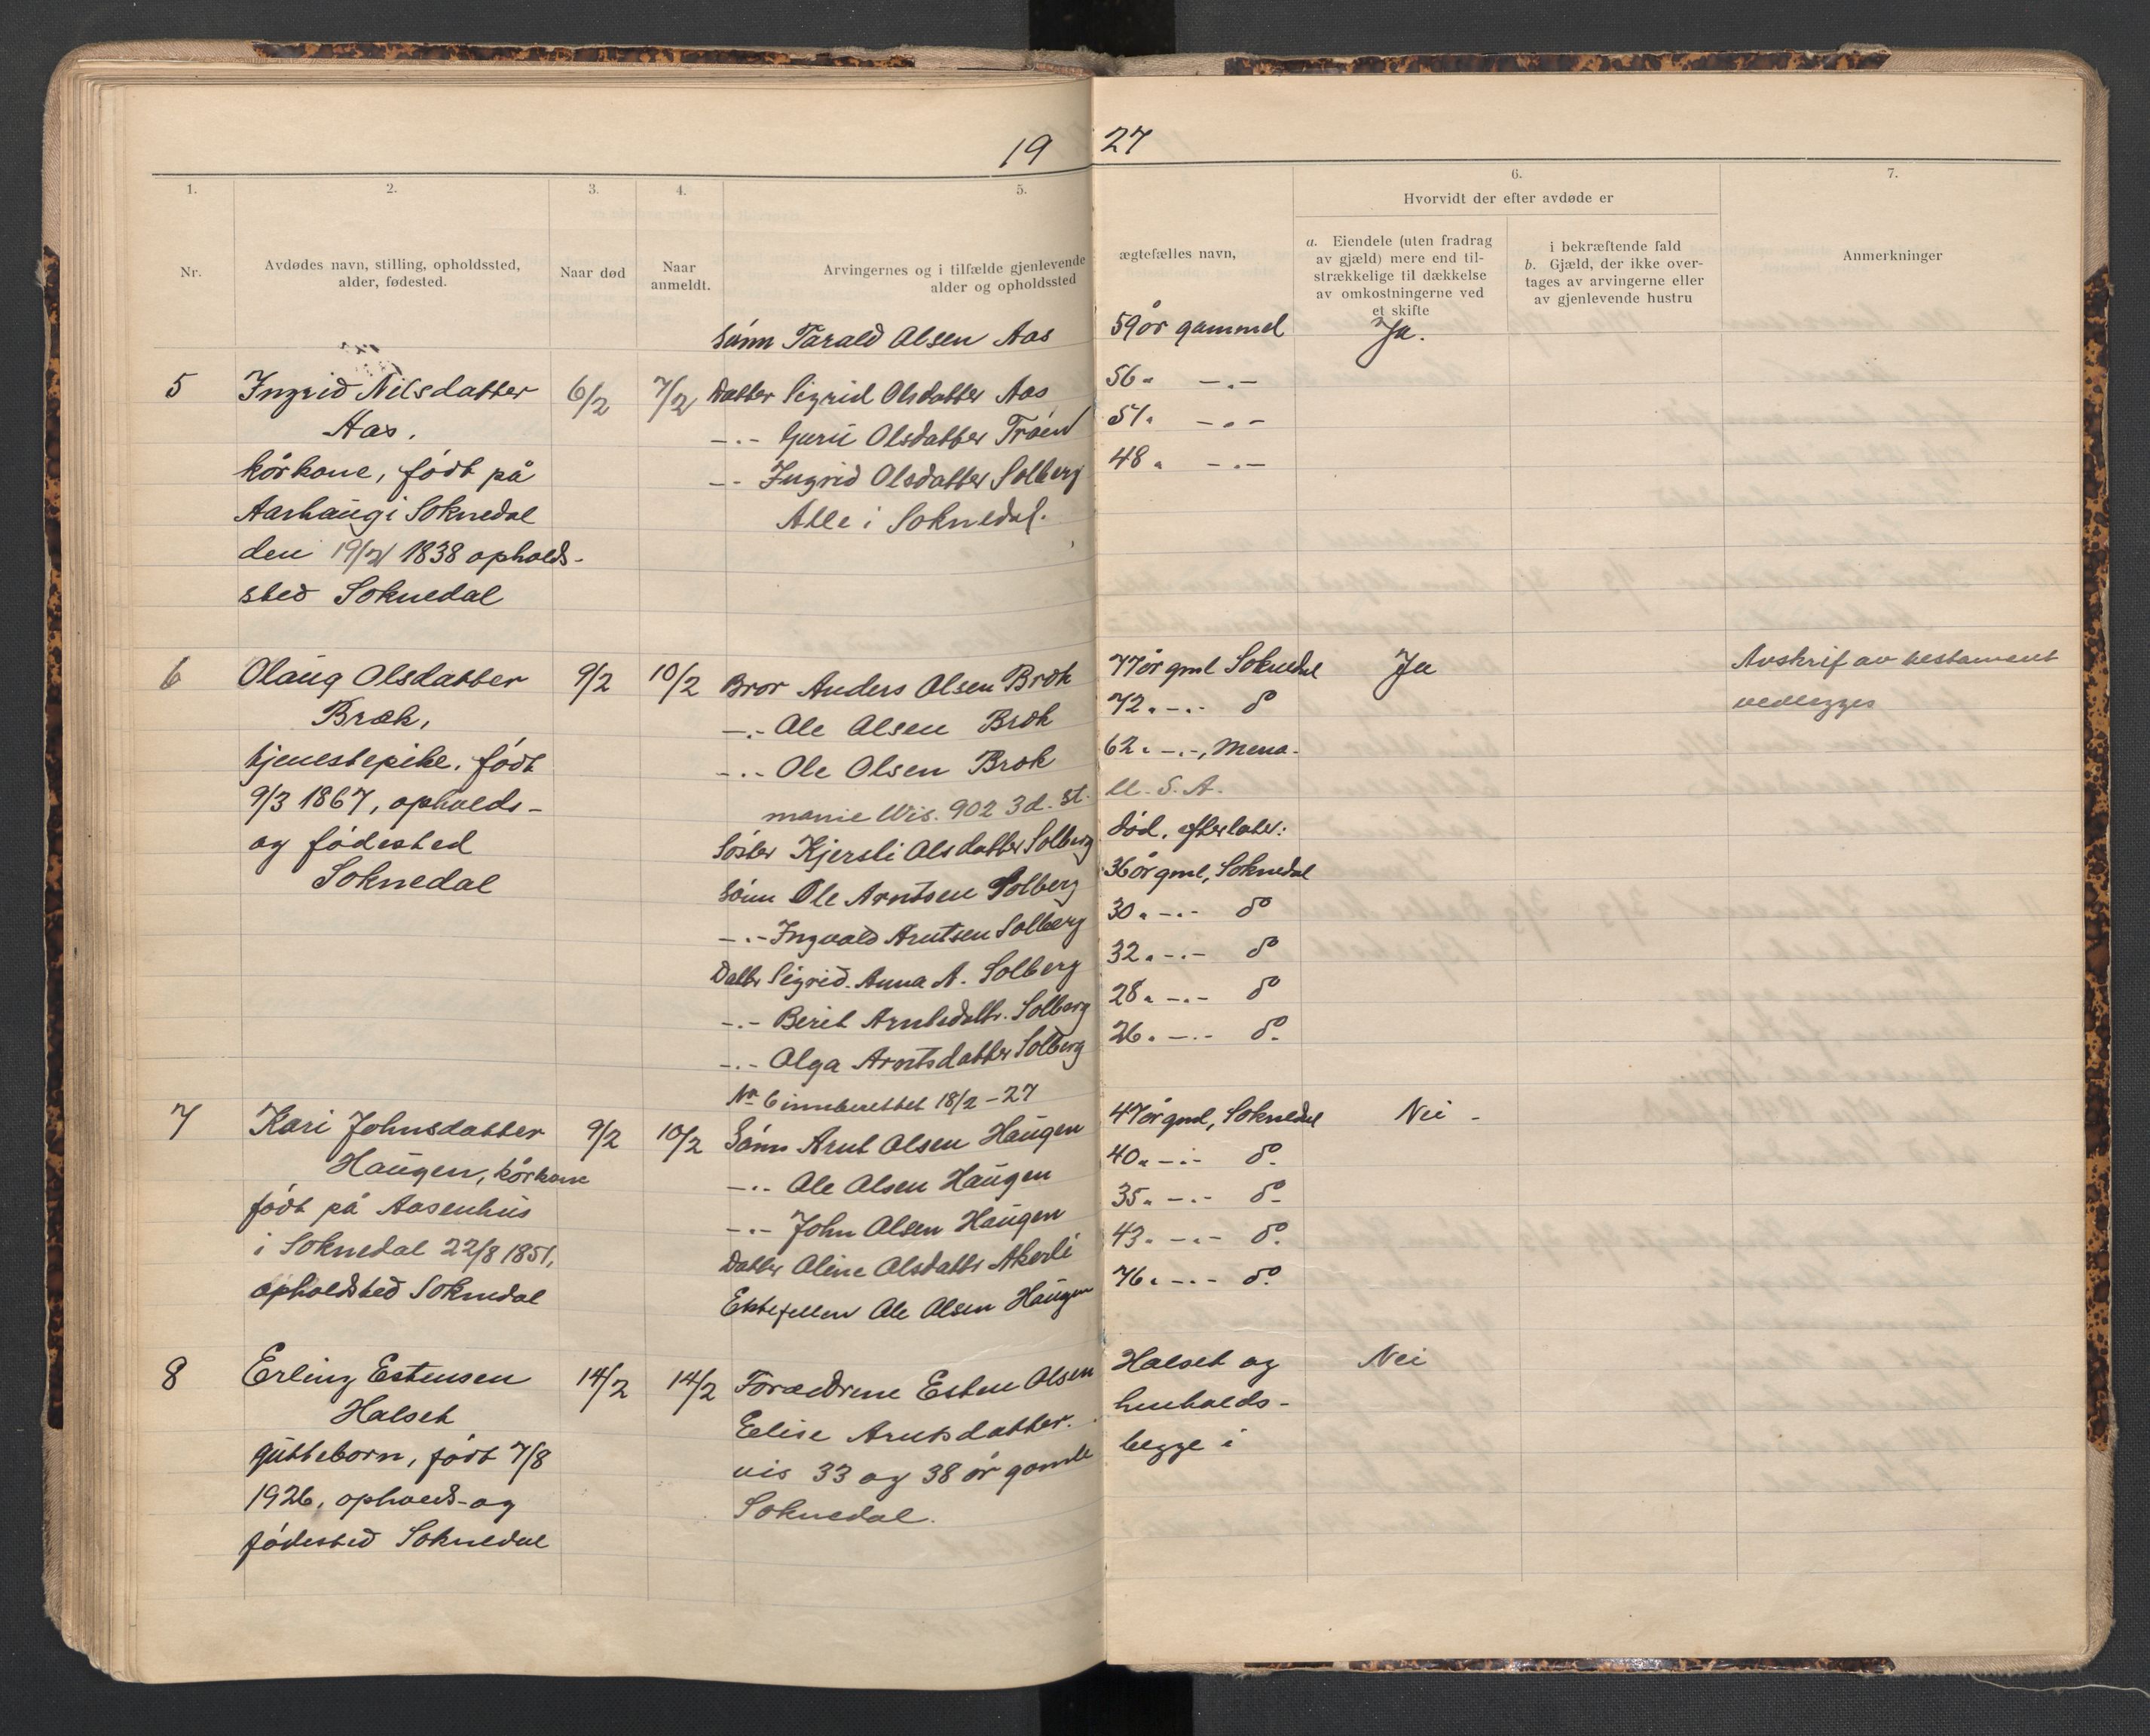 19 27
1.
2.
3.
4.
5.
6.
7.
Nr.
Avdødes navn, stilling, opholdssted,
alder, fødested.
Naar død
Naar
anmeldt.
Arvingernes og i tilfælde gjenlevende ægtefælles navn,
alder og opholdssted
Hvorvidt der efter avdøde er
a. Eiendele (uten fradrag
av gjæld) mere end til-
strækkelige til dækkelse
av omkostningerne ved
et skifte
i bekræftende fald
b. Gjæld, der ikke over-
tages av arvingerne eller
av gjenlevende hustru
Anmerkninger
5
Ingrid Nilsdatter
Aas.
kårkone, født på
Aarhaug i Soknedal
den 19/2 1838 ophold-
sted Soknedal
6/2
7/2
Sønn Tarald Olsen Aas 59 år gammel
Datter Sigrid Olsdatter Aas 56 " -.-
-.- Guru Olsdatter Trøen 51 " -.-
-.- Ingrid Olsdatter Solberg 48 " -.-
Alle i Soknedal.
Ja.
6
Olaug Olsdatter
Bræk,
tjenestepike, født
9/3 1867, opholds-
og fødested
Soknedal
9/2
10/2
Bror Anders Olsen Bræk 77 år gml Soknedal
-.- Ole Olsen Bræk 72 " -.- do
-.- Ole Olsen Bræk 62 " -.-, Meno-
monie Wis. 902 3d. St. U. S. A.
Søster Kjersti Olsdatter Solberg død, efterlater:
Sønn Ole Arntsen Solberg 36 år gml, Soknedal
-.- Ingvald Arntsen Solberg 30 " -.- do
Datter Sigrid Anna A. Solberg 32 " -.- do
-.- Berit Arntsdattr. Solberg 28 " -.- do
-.- Olga Arntsdatter Solberg 26 " -.- do.
No 6 innberettet 18/2 - 27
Ja
Avskrif av testament
vedlegges
7
Kari Johnsdatter
Haugen, kårkone
født på Aasenhus
i Soknedal 22/8 1851,
opholdsted Soknedal
9/2
10/2
Sønn Arnt Olsen Haugen 47 år gml, Soknedal
-.- Ole Olsen Haugen 40 " -.- do.
-.- John Olsen Haugen 35 " -.- do.
Datter Oline Olsdattr Akerli 43 " -.- do.
Ektefellen Ole Olsen Haugen 76 " -.- do.
Nei -
8
Erling Estensen
Halset
guttebørn, født 7/8
1926, opholds- og
fødested Soknedal
14/2
14/2
Forældrene Esten Olsen Halset og
Elise Arntsdatter. henholds-
vis 33 og 38 år gamle begge i
Soknedal.
Nei